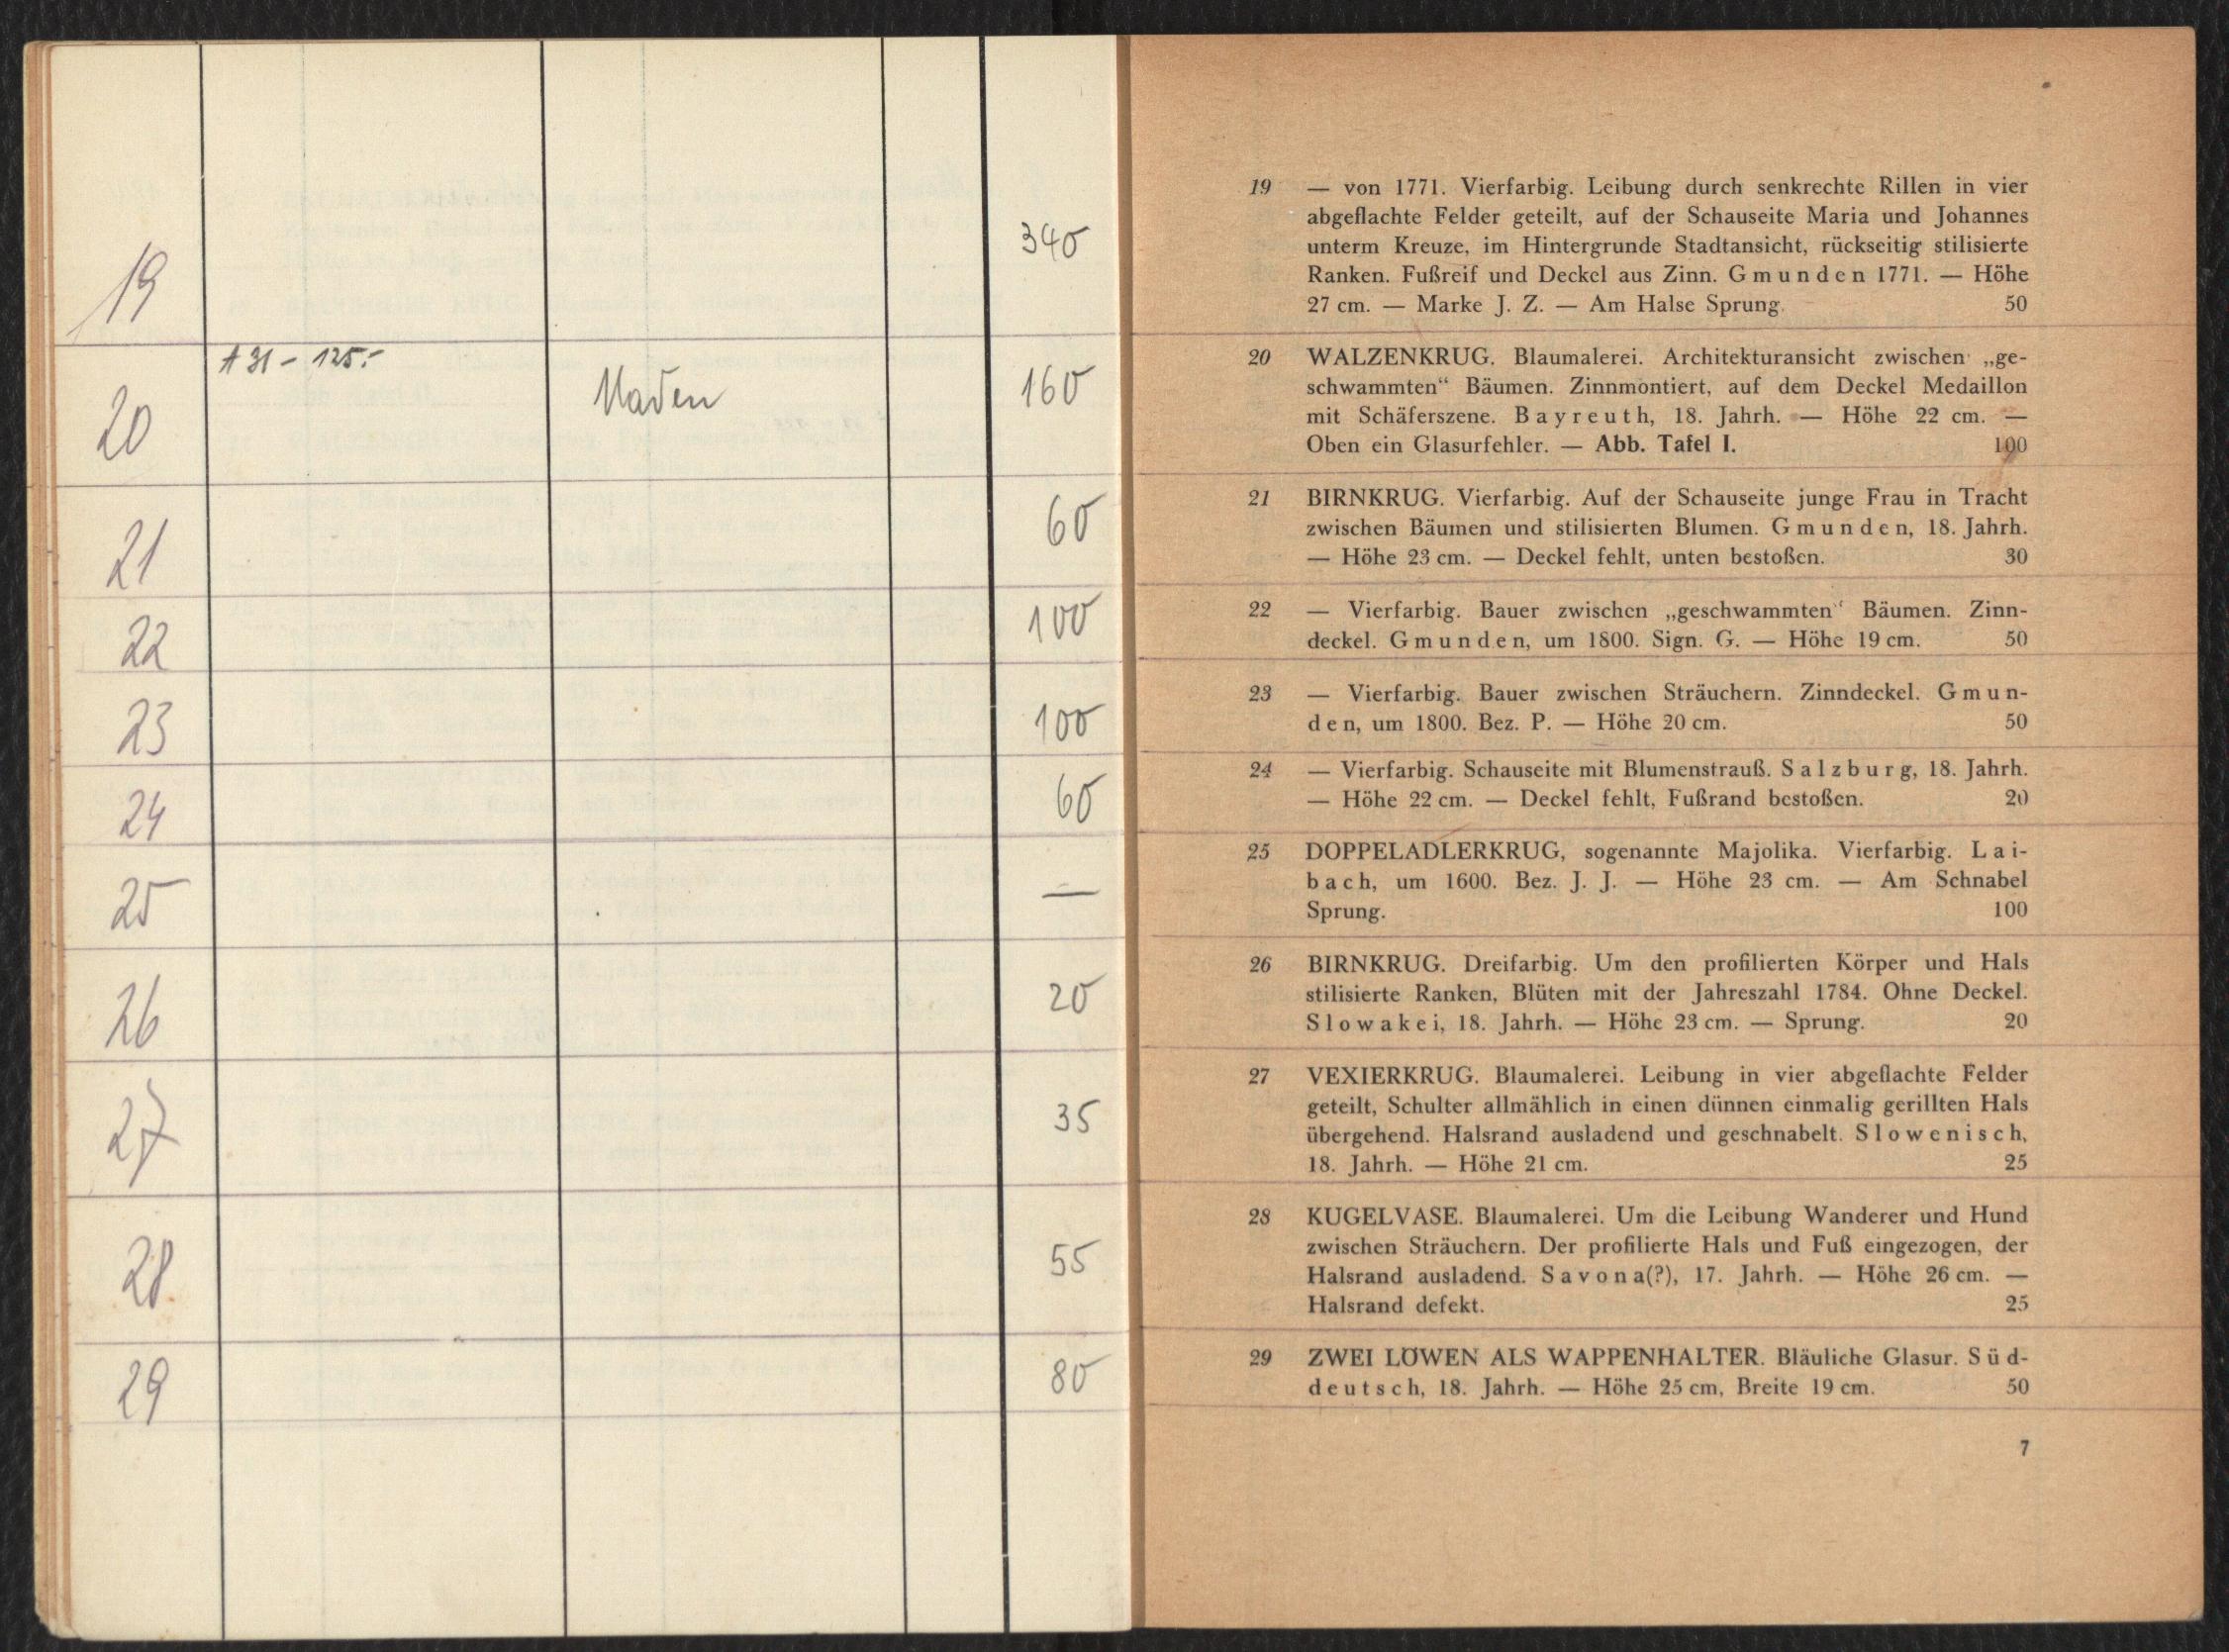 19 340
A 31 - 125.-
20 160
21 60
22 100
23 100
24 60
25 —
26 20
27 35
28. 55
29 80
19 — von 1771. Vierfarbig. Leibung durch senkrechte Rillen in vier
abgeflachte Felder geteilt, auf der Schauseite Maria und Johannes
unterm Kreuze, im Hintergrunde Stadtansicht, rückseitig stilisierte
Ranken. Fußreif und Deckel aus Zinn. Gmunden 1771. — Höhe
27 cm. — Marke J. Z. — Am Halse Sprung. 50
20 WALZENKRUG. Blaumalerei. Architekturansicht zwischen „ge-
schwammten“ Bäumen. Zinnmontiert, auf dem Deckel Medaillon
mit Schäferszene. Bayreuth, 18. Jahrh. — Höhe 22 cm. —
Oben ein Glasurfehler. — Abb. Tafel I. 100
21 BIRNKRUG. Vierfarbig. Auf der Schauseite junge Frau in Tracht
zwischen Bäumen und stilisierten Blumen. Gmunden, 18. Jahrh.
— Höhe 23 cm. — Deckel fehlt, unten bestoßen. 30
22 — Vierfarbig. Bauer zwischen „geschwammten“ Bäumen. Zinn-
deckel. Gmunden, um 1800. Sign. G. — Höhe 19 cm. 50
23 — Vierfarbig. Bauer zwischen Sträuchern. Zinndeckel. Gmun-
den, um 1800. Bez. P. — Höhe 20 cm. 50
24 — Vierfarbig. Schauseite mit Blumenstrauß. Salzburg, 18. Jahrh.
— Höhe 22 cm. — Deckel fehlt, Fußrand bestoßen. 20
25 DOPPELADLERKRUG, sogenannte Majolika. Vierfarbig. Lai-
bach, um 1600. Bez. J. J. — Höhe 23 cm. — Am Schnabel
Sprung. 100
26 BIRNKRUG. Dreifarbig. Um den profilierten Körper und Hals
stilisierte Ranken, Blüten mit der Jahreszahl 1784. Ohne Deckel.
Slowakei, 18. Jahrh. — Höhe 23 cm. — Sprung. 20
27 VEXIERKRUG. Blaumalerei. Leibung in vier abgeflachte Felder
geteilt, Schulter allmählich in einen dünnen einmalig gerillten Hals
übergehend. Halsrand ausladend und geschnabelt. Slowenisch,
18. Jahrh. — Höhe 21 cm. 25
28 KUGELVASE. Blaumalerei. Um die Leibung Wanderer und Hund
zwischen Sträuchern. Der profilierte Hals und Fuß eingezogen, der
Halsrand ausladend. Savona(?), 17. Jahrh. — Höhe 26 cm. —
Halsrand defekt. 25
29 ZWEI LÖWEN ALS WAPPENHALTER. Bläuliche Glasur. Süd-
deutsch, 18. Jahrh. — Höhe 25 cm, Breite 19 cm. 50
7